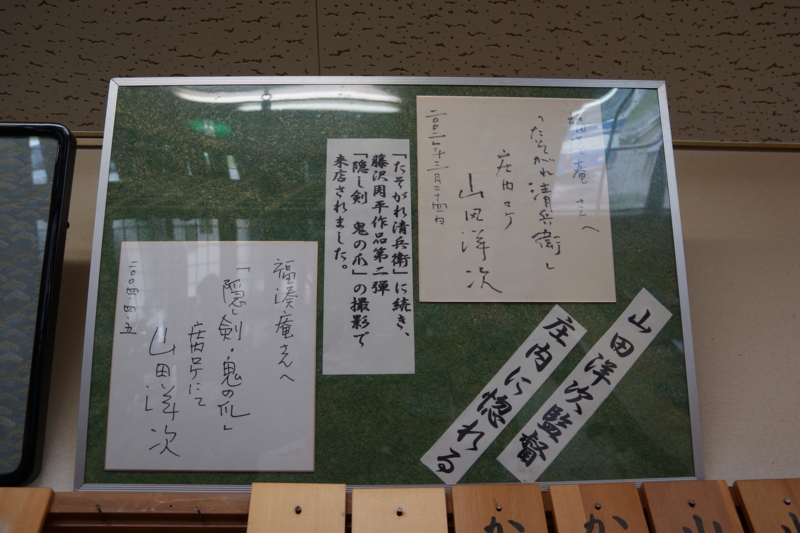 湊庵さんへ
「たそがれ清兵衛」
庄内ロケ
山田洋次
「たそがれ清兵衛」に続き、
藤沢周平作品第二弾
「隠し剣 鬼の爪」の撮影で
来店されました。
福湊庵さんへ
「隠し剣・鬼の爪」
庄内ロケにて
山田洋次
二〇〇四・四・五
山田洋次監督
庄内に惚れる
か
か